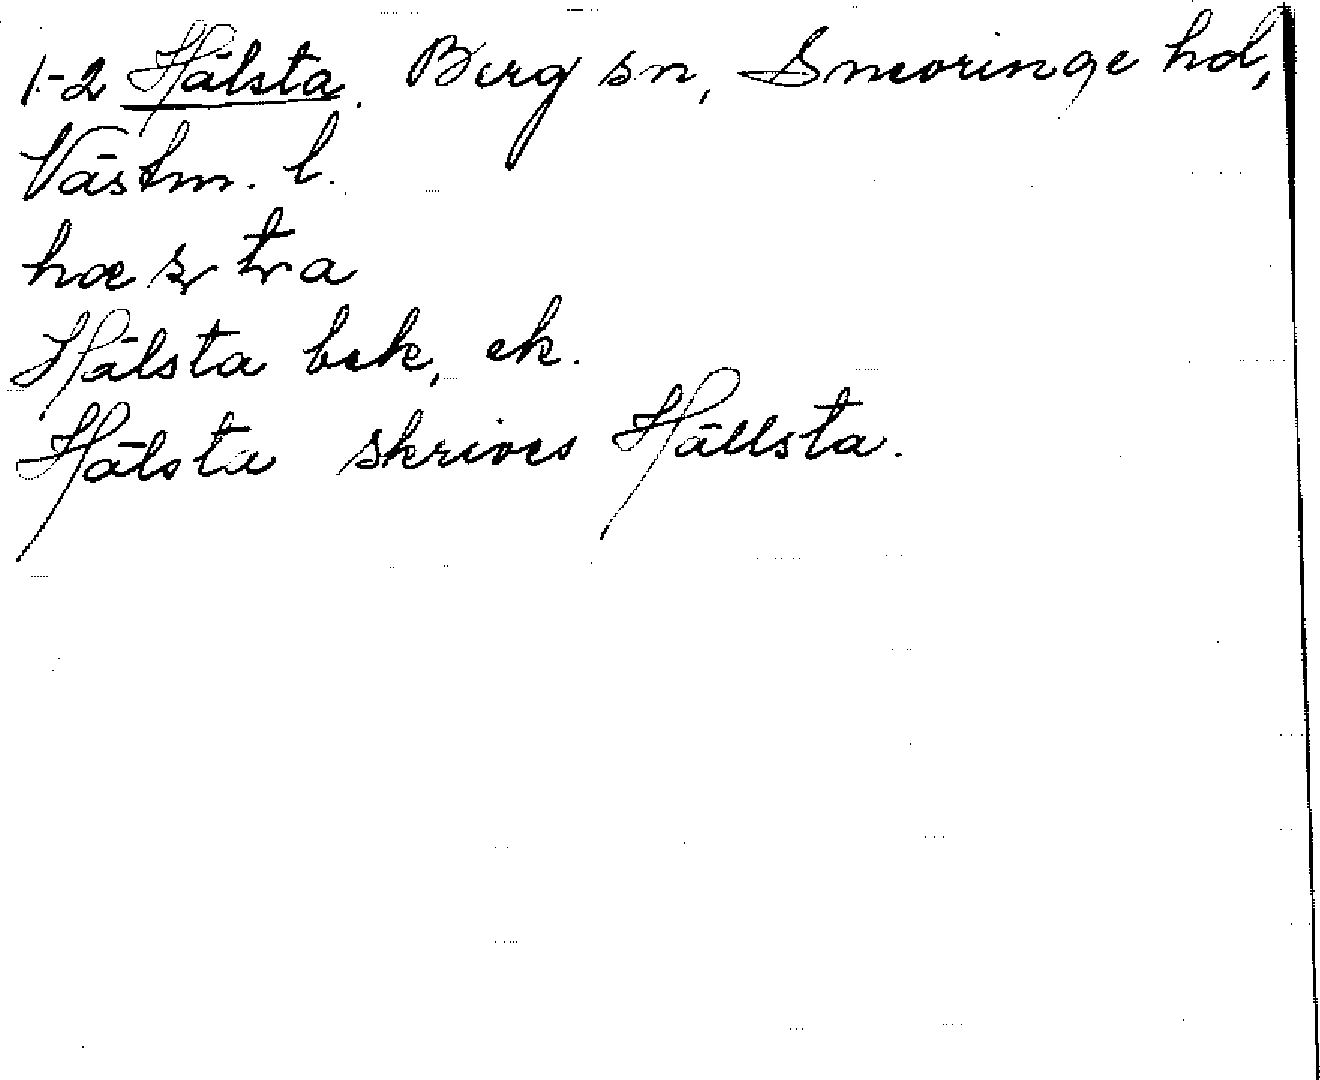 1-2 Hälsta. Berg sn, Snevringe hd,
Västm. l.
Hälsta bek, ek.
Hälsta skrives Hällsta.